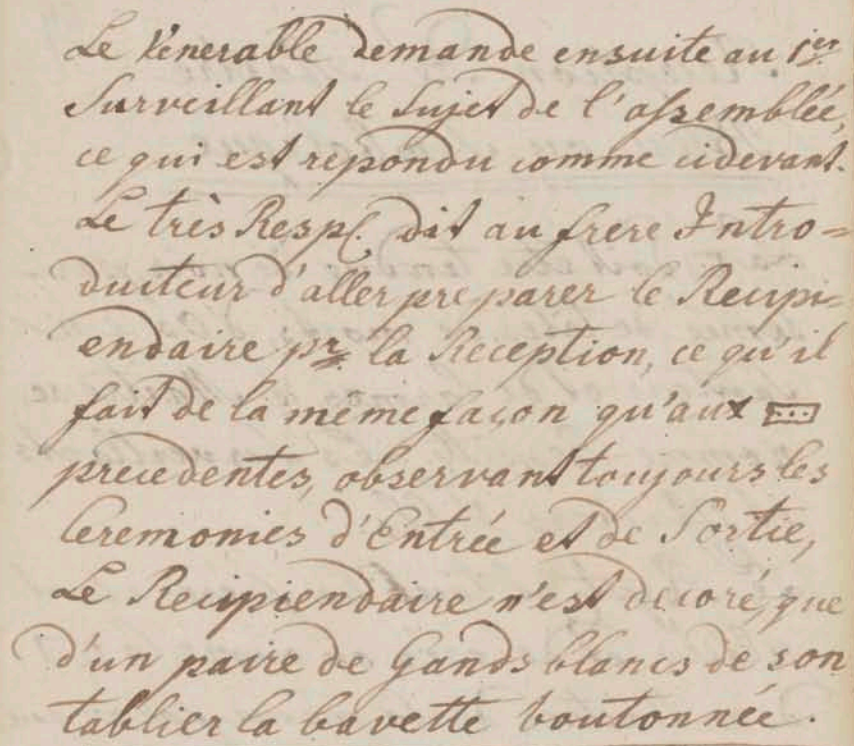 Le Vénerable demande ensuite au 1er
Surveillant le Sujet de l'assemblée,
ce qui est repondu comme cidevant.
Le très Resp. dit au frere Intro=
ducteur d'aller preparer le Recipi=
endaire pr. la Reception, ce qu'il
fait de la même façon qu'aux
precedentes, observant toujours les
Ceremonies d'Entrée et de Sortie,
Le Recipiendaire n'est decoré, que
d'un paire de Gands blancs de son
tablier la bavette boutonnée.